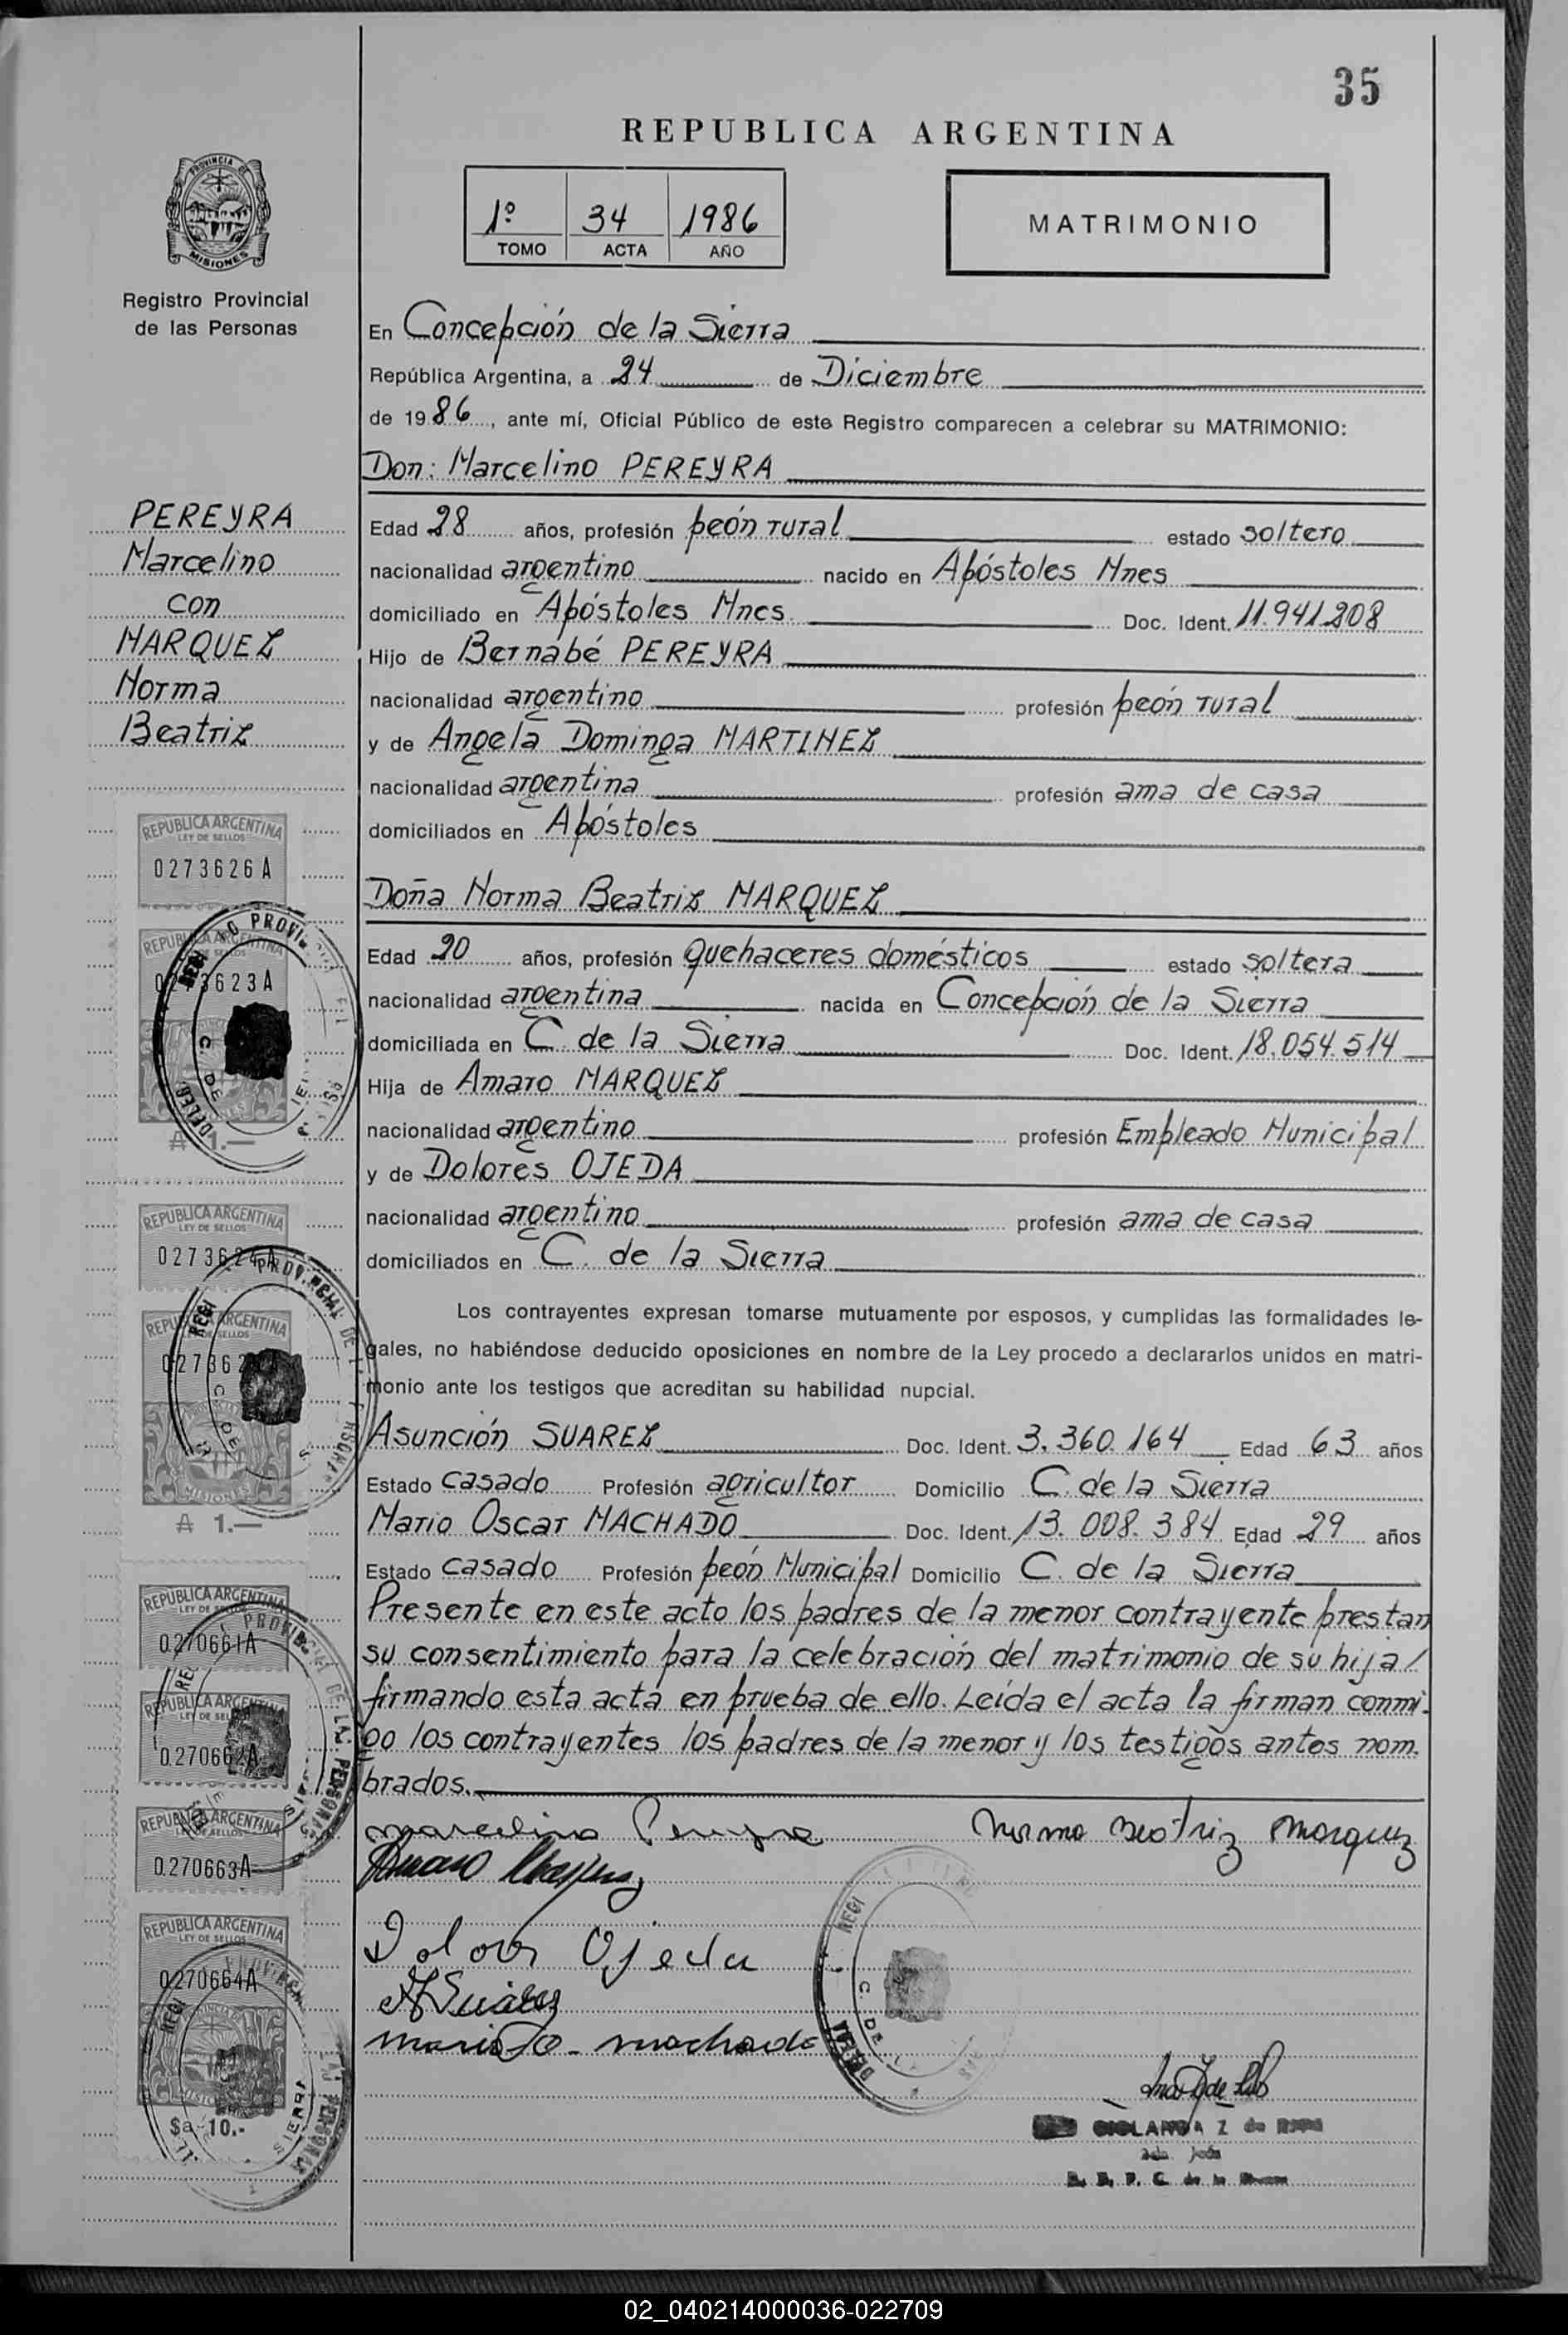 35
REPUBLICA ARGENTINA
PROVINCIA DE
MISIONES
Registro Provincial
de las Personas
1º 34 1986
TOMO ACTA AÑO
MATRIMONIO
En Concepción de la Sierra
República Argentina, a 24 de Diciembre
de 1986, ante mí, Oficial Público de este Registro comparecen a celebrar su MATRIMONIO:
Don: Marcelino PEREYRA
PEREYRA
Marcelino
con
MARQUEZ
Norma
Beatriz
Edad 28 años, profesión peón rural estado soltero
nacionalidad argentino nacido en Apóstoles Mnes
domiciliado en Apóstoles Mnes. Doc. Ident. 11.941.208
Hijo de Bernabé PEREYRA
nacionalidad argentino profesión peón rural
y de Angela Dominga MARTINEZ
nacionalidad argentina profesión ama de casa
domiciliados en Apóstoles
Doña Norma Beatriz MARQUEZ
Edad 20 años, profesión quehaceres domésticos estado soltera
nacionalidad argentina nacida en Concepción de la Sierra
domiciliada en C. de la Sierra Doc. Ident. 18.054.514
Hija de Amaro MARQUEZ
nacionalidad argentino profesión Empleado Municipal
y de Dolores OJEDA
nacionalidad argentino profesión ama de casa
domiciliados en C. de la Sierra
Los contrayentes expresan tomarse mutuamente por esposos, y cumplidas las formalidades le-
gales, no habiéndose deducido oposiciones en nombre de la Ley procedo a declararlos unidos en matri-
monio ante los testigos que acreditan su habilidad nupcial.
Asunción SUAREZ Doc. Ident. 3.360.164 Edad 63 años
Estado casado Profesión agricultor Domicilio C. de la Sierra
Mario Oscar MACHADO Doc. Ident. 13.008.384 Edad 29 años
Estado casado Profesión peón Municipal Domicilio C. de la Sierra
Presente en este acto los padres de la menor contrayente prestan
su consentimiento para la celebración del matrimonio de su hija/
firmando esta acta en prueba de ello. Leída el acta la firman conmi-
go los contrayentes los padres de la menor y los testigos antes nom-
brados.
Marcelino Pereyra Norma Beatriz Marquez
Amaro Marquez
Dolores Ojeda
A Suárez
Mario O. Machado
REPUBLICA ARGENTINA
LEY DE SELLOS
0273626A
REPUBLICA ARGENTINA
LEY DE SELLOS
0273623A
MISIONES
₳ 1.—
REPUBLICA ARGENTINA
LEY DE SELLOS
0273624A
REPUBLICA ARGENTINA
LEY DE SELLOS
MISIONES
₳ 1.—
REPUBLICA ARGENTINA
LEY DE SELLOS
0270661A
REPUBLICA ARGENTINA
LEY DE SELLOS
0270662A
REPUBLICA ARGENTINA
LEY DE SELLOS
0270663A
REPUBLICA ARGENTINA
LEY DE SELLOS
0270664A
$a 10.-
02_040214000036-022709